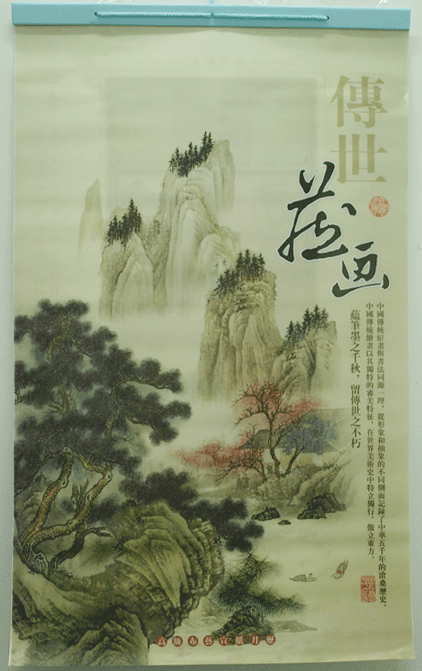 傳世
藏画
中國傳統繪畫與書法同源一理，從形象和抽象的不同側面記錄了中華五千年的滄桑歷史，
中國傳統繪畫以其獨特的審美特征，在世界美術史中特立獨行，傲立東方。
蘊筆墨之千秋，留傳世之不朽
高檔布藝宣紙月曆